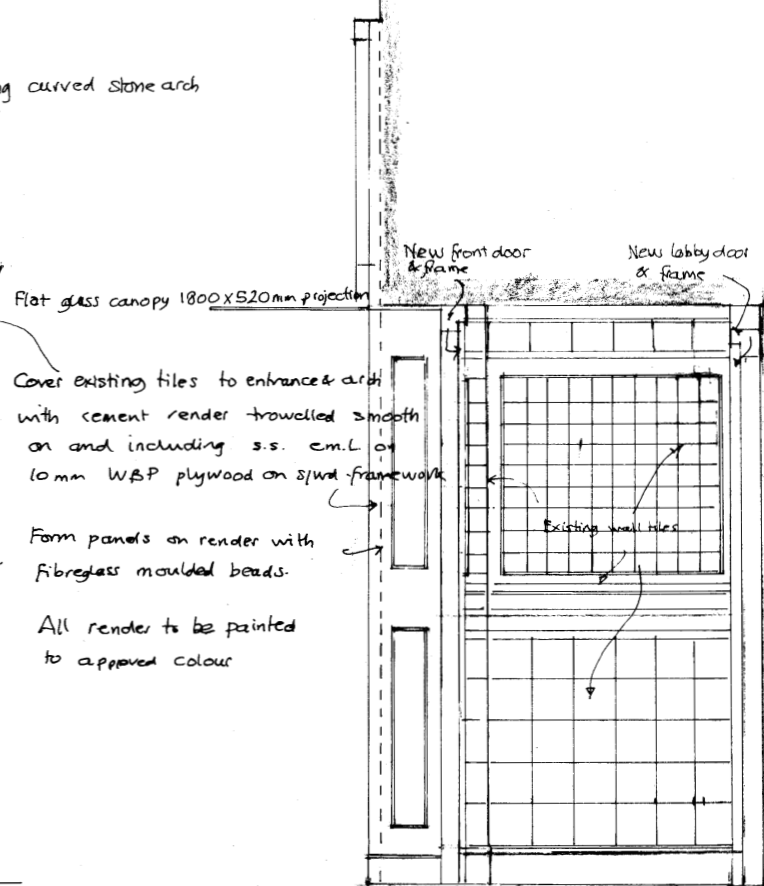 curved stone arch
New front door
& frame
New lobby door
& frame
Flat glass canopy 1800 x 520mm projection
Cover existing tiles to entrance & arch
with cement render trowelled smooth
on and including s.s. e.m.L on
10mm WBP plywood on s/wd framework
Existing wall tiles
Form panels on render with
fibreglass moulded beads.
All render to be painted
to approved colour